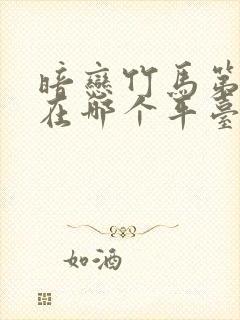 暗戀竹馬第
在那个年臺
如酒